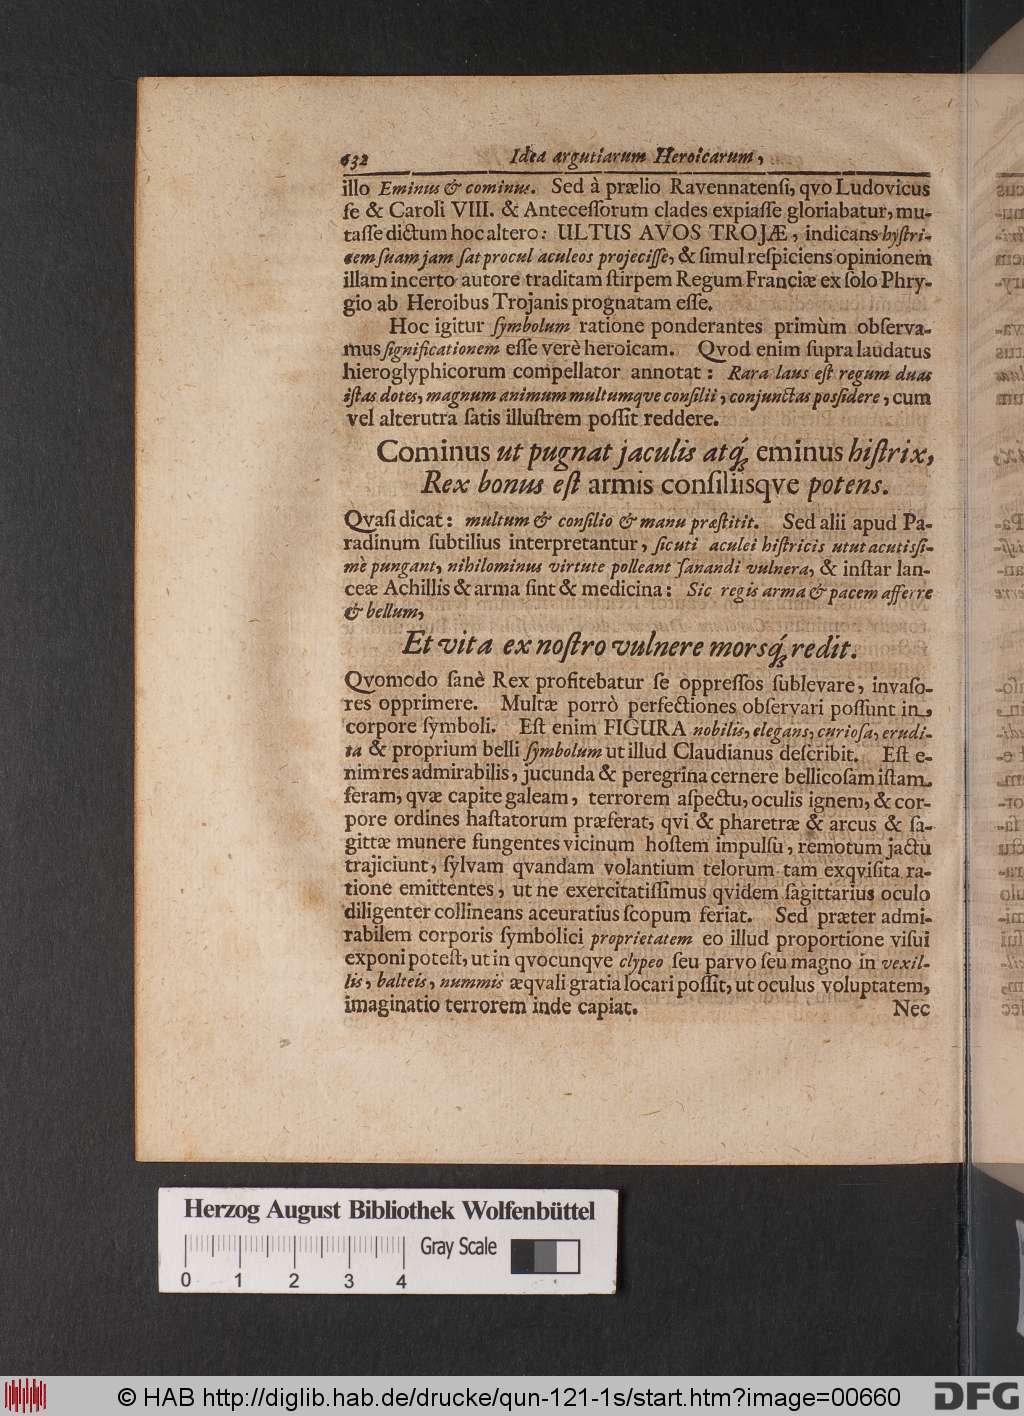 632 Idea argutiarum Heroicarum,
illo Eminus & cominus. Sed à prælio Ravennatenſi, qvo Ludovicus
ſe & Caroli VIII. & Anteceſſorum clades expiaſſe gloriabatur, mu-
taſſe dictum hoc altero: ULTUS AVOS TROJÆ, indicans hyſtri-
cem ſuam jam ſat procul aculeos projeciſſe, & ſimul reſpiciens opinionem
illam incerto autore traditam ſtirpem Regum Franciæ ex ſolo Phry-
gio ab Heroibus Trojanis prognatam eſſe.
Hoc igitur ſymbolum ratione ponderantes primùm obſerva-
mus ſignificationem eſſe verè heroicam. Qvod enim ſupra laudatus
hieroglyphicorum compellator annotat: Rara laus eſt regum duas
iſtas dotes, magnum animum multumqve conſilii, conjunctas poſſidere, cum
vel alterutra ſatis illuſtrem poſſit reddere.
Cominus ut pugnat jaculis atq́; eminus hiſtrix,
Rex bonus eſt armis conſiliisqve potens.
Qvaſi dicat: multum & conſilio & manu præſtitit. Sed alii apud Pa-
radinum ſubtilius interpretantur, ſicuti aculei hiſtricis utut acutisſi-
mè pungant, nihilominus virtute polleant ſanandi vulnera, & inſtar lan-
ceæ Achillis & arma ſint & medicina: Sic regis arma & pacem afferre
& bellum,
Et vita ex noſtro vulnere morsq́; redit.
Qvomodo ſanè Rex profitebatur ſe oppreſſos ſublevare, invaſo-
res opprimere. Multæ porrò perfectiones obſervari poſſunt in
corpore ſymboli. Eſt enim FIGURA nobilis, elegans, curioſa, erudi-
ta & proprium belli ſymbolum ut illud Claudianus deſcribit. Eſt e-
nim res admirabilis, jucunda & peregrina cernere bellicoſam iſtam
feram, qvæ capite galeam, terrorem aſpectu, oculis ignem, & cor-
pore ordines haſtatorum præferat, qvi & pharetræ & arcus & ſa-
gittæ munere fungentes vicinum hoſtem impulſu, remotum jactu
trajiciunt, ſylvam qvandam volantium telorum tam exqviſita ra-
tione emittentes, ut ne exercitatiſſimus qvidem ſagittarius oculo
diligenter collineans aceuratius ſcopum feriat. Sed præter admi-
rabilem corporis ſymbolici proprietatem eo illud proportione viſui
exponi poteſt, ut in qvocunqve clypeo ſeu parvo ſeu magno in vexil-
lis, balteis, nummis æqvali gratia locari poſſit, ut oculus voluptatem,
imaginatio terrorem inde capiat. Nec
Herzog August Bibliothek Wolfenbüttel
Gray Scale
0 1 2 3 4
© HAB http://diglib.hab.de/drucke/qun-121-1s/start.htm?image=00660
DFG